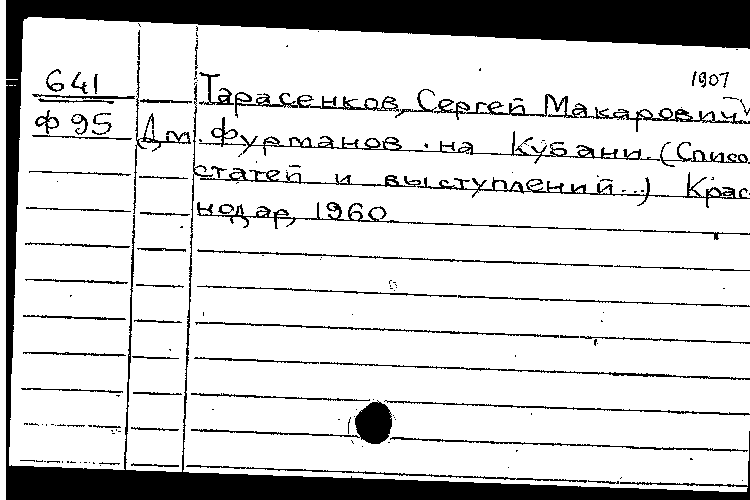 1907
641
Ф 95
Тарасенков, Сергей Макарович
Дм. Фурманов на Кубани. (Списо
статей и выступлений...) Крас-
нодар, 1960.